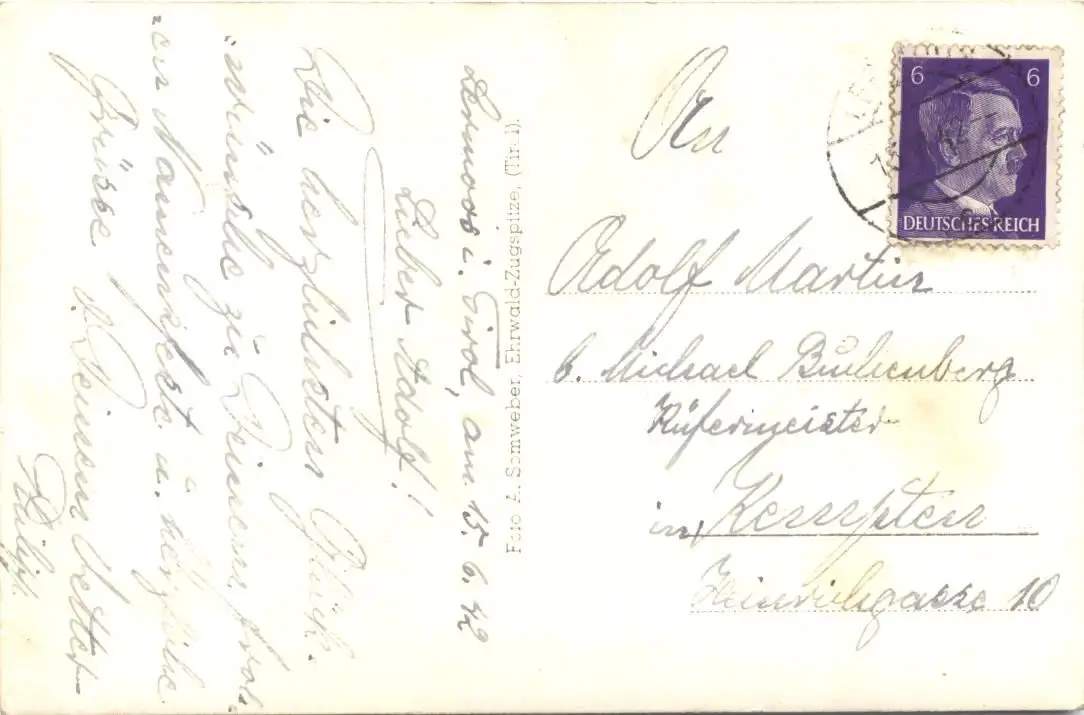 Lermoos i. Tirol, am 15. 6. 42
Lieber Adolf!
Die herzlichsten Glück-
"wünsche zu Deinem froh-
"en Namensfeste u. herzliche
Grüsse v. Deinem Vetter
Foto A. Somweber, Ehrwald-Zugspitze, (Tirol).
6 6
DEUTSCHES REICH
An
Adolf Martin
b. Michael Buchenberg
Küfermeister
in Kempten
Heinrichgasse 10